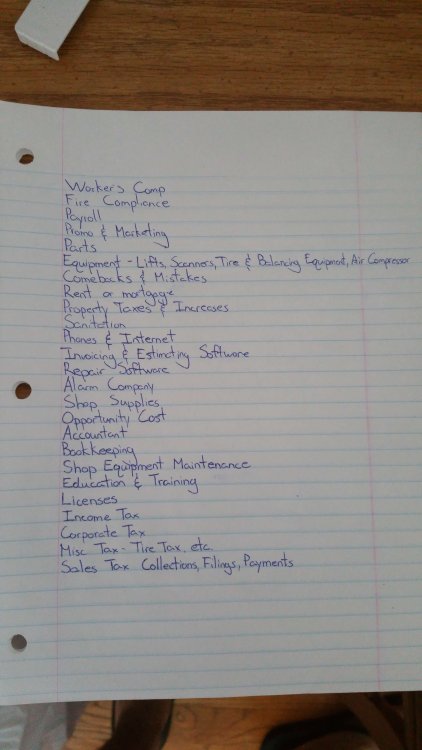 Workers Comp
Fire Compliance
Payroll
Promo & Marketing
Parts
Equipment - Lifts, Scanners, Tire & Balancing Equipment, Air Compressor
Comebacks & Mistakes
Rent or mortgage
Property Taxes & Increases
Sanitation
Phones & Internet
Invoicing & Estimating Software
Repair Software
Alarm Company
Shop Supplies
Opportunity Cost
Accountant
Bookkeeping
Shop Equipment Maintenance
Education & Training
Licenses
Income Tax
Corporate Tax
Misc Tax - Tire Tax, etc.
Sales Tax Collections, Filings, Payments